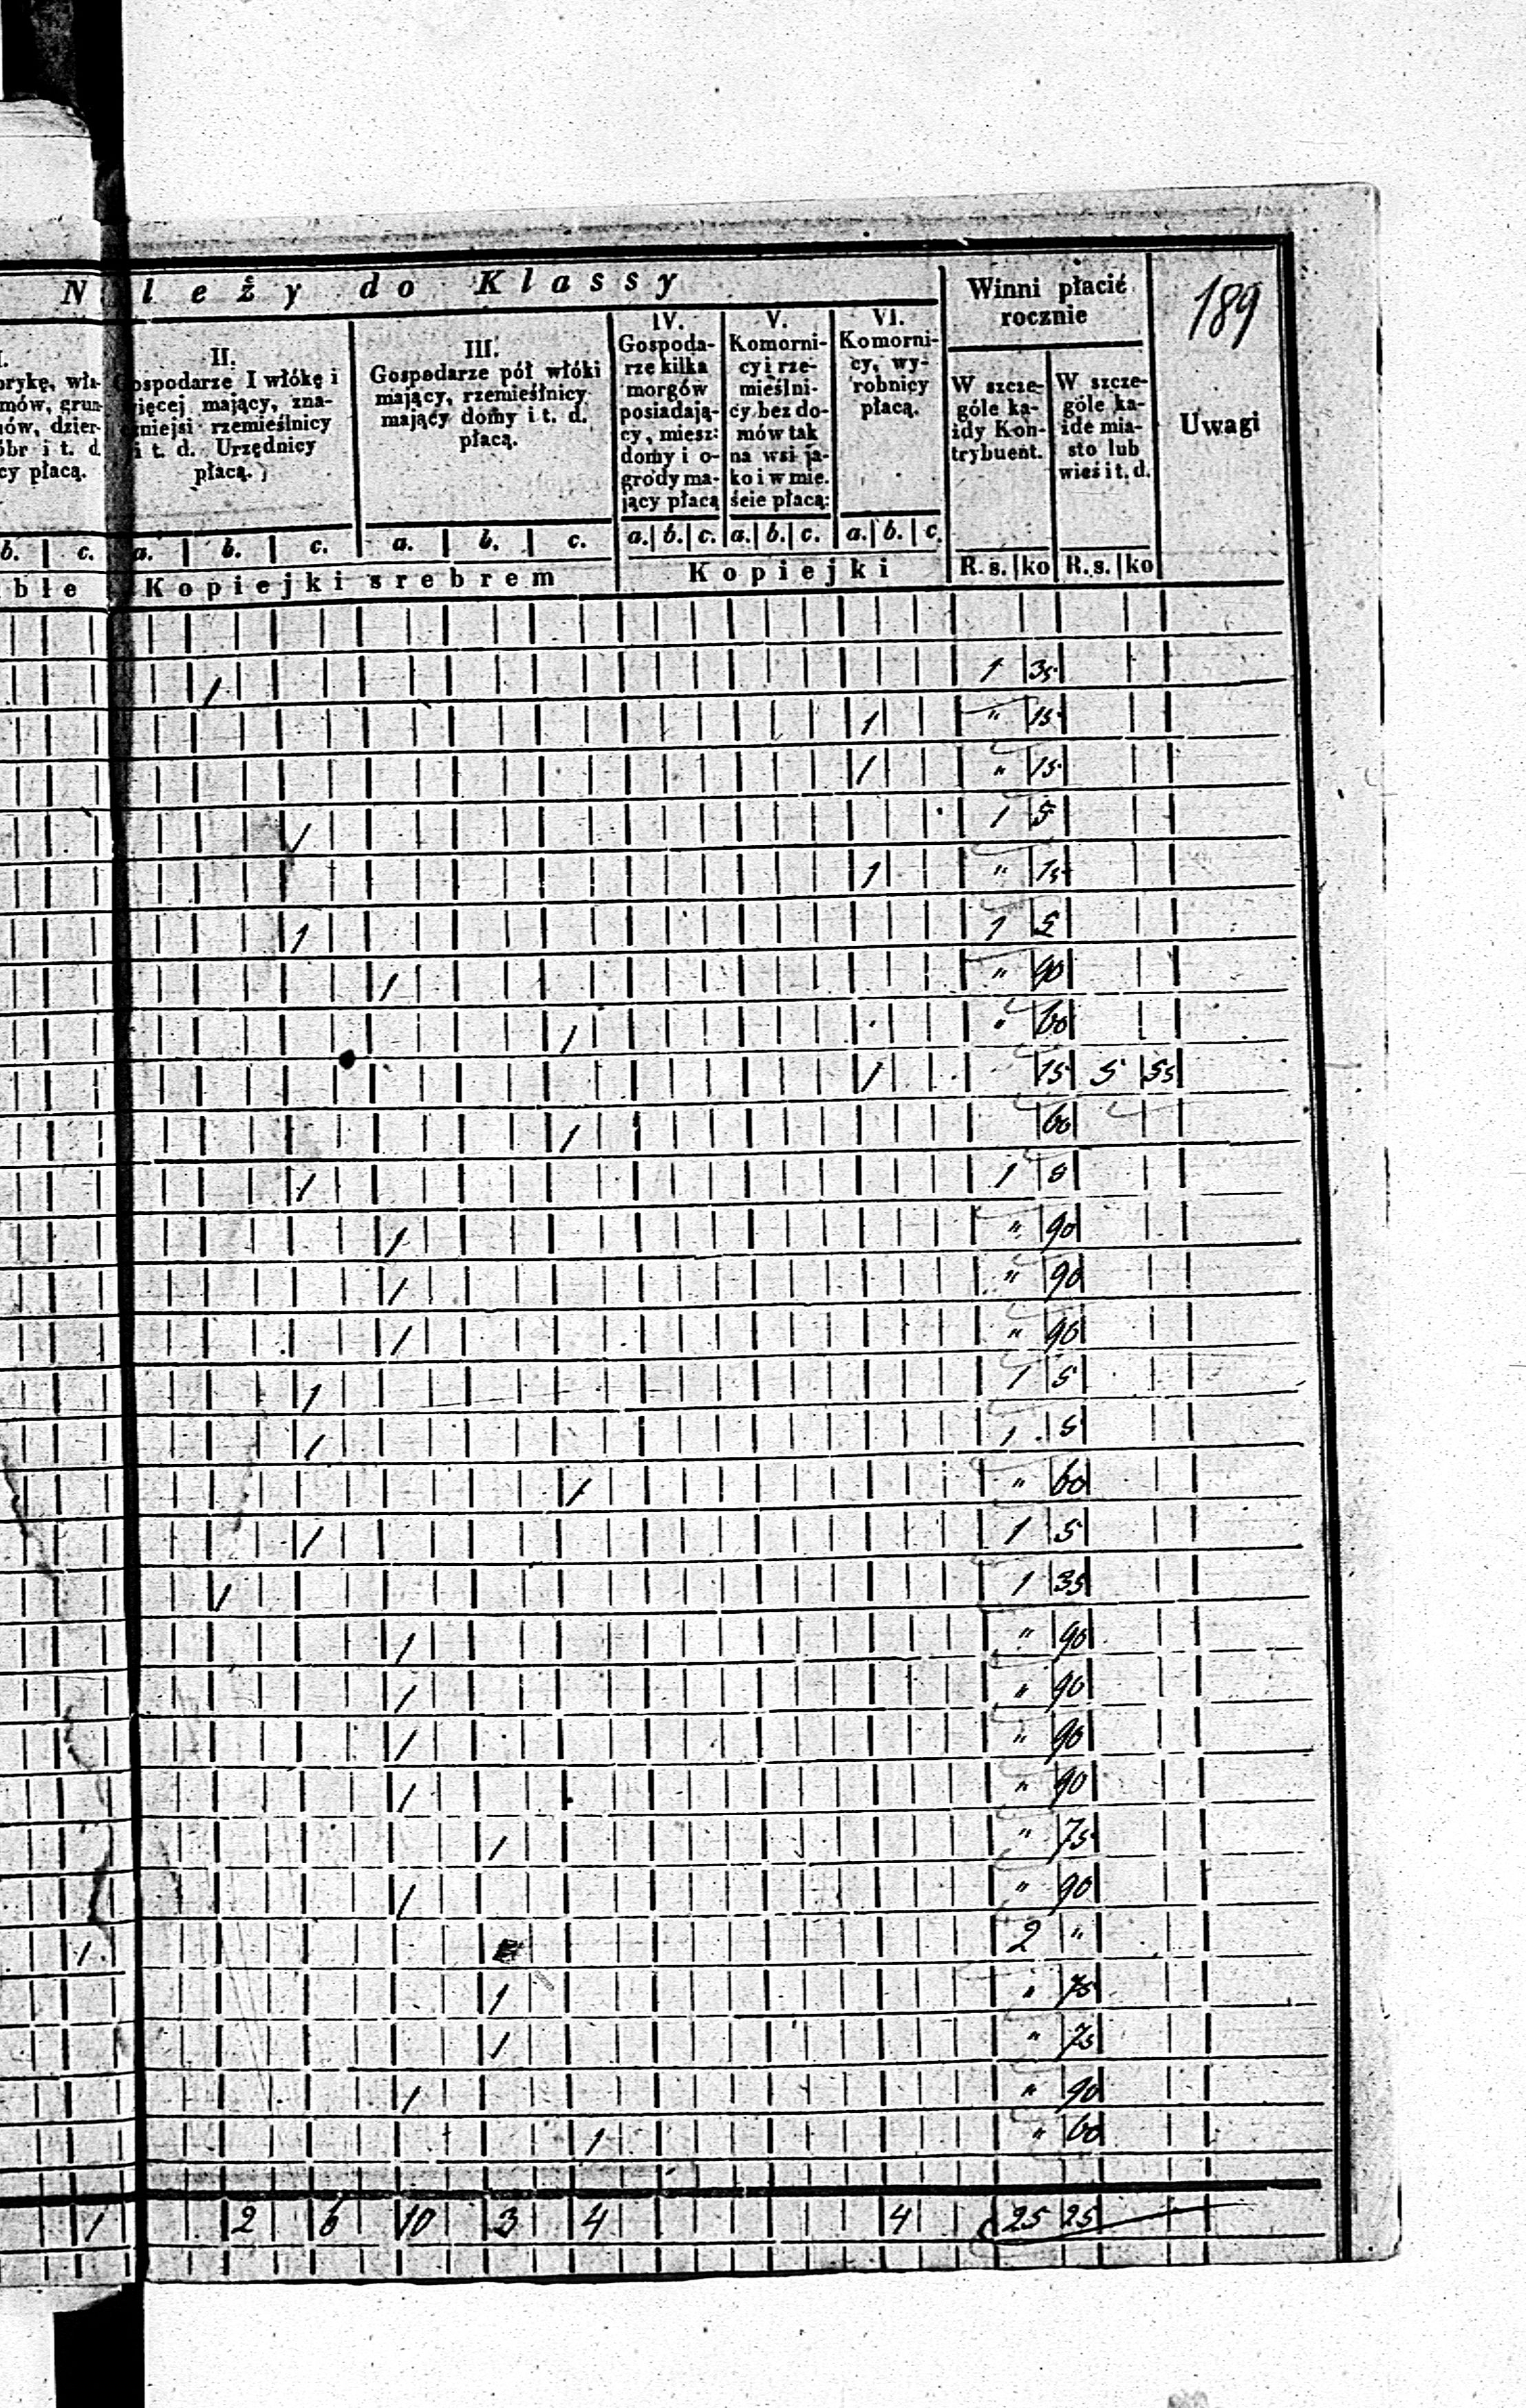 N leży do Klassy
Winni płacić
rocznie
189
I.
brykę, wła-
mów, grun-
ów, dzier-
óbr i t. d.
cy płacą.
II.
Gospodarze I włókę i
więcej mający, zna-
czniejsi rzemieślnicy
i t. d. Urzędnicy
płacą.
III.
Gospodarze pół włóki
mający, rzemieślnicy
mający domy i t. d.
płacą.
IV.
Gospoda-
rze kilka
morgów
posiadają-
cy, miesz:
domy i o-
grody ma-
jący płacą
V.
Komorni-
cy i rze-
mieślni-
cy bez do-
mów tak
na wsi ja-
ko i w mie.
ście płacą:
VI.
Komorni-
cy, wy-
robnicy
płacą.
W szcze-
góle ka-
żdy Kon-
trybuent.
W szcze-
góle ka-
żde mia-
sto lub
wieś i t. d.
Uwagi
b. c. a. b. c. a. b. c. a. b. c. a. b. c. a. b. c.
ble Kopiejki srebrem Kopiejki R. s. ko R. s. ko
1 1 35
1 " 15
1 " 15
1 1 5
1 " 15
1 1 5
1 " 90
1 " 60
1 15 5 55
1 60
1 1 5
1 " 90
1 " 90
1 " 90
1 1 5
1 1 5
1 " 60
1 1 5
1 1 35
1 " 90
1 " 90
1 " 90
1 " 90
1 " 75
1 " 90
1 2 "
1 " 75
1 " 75
1 " 90
1 " 60
1 2 6 10 3 4 4 25 25